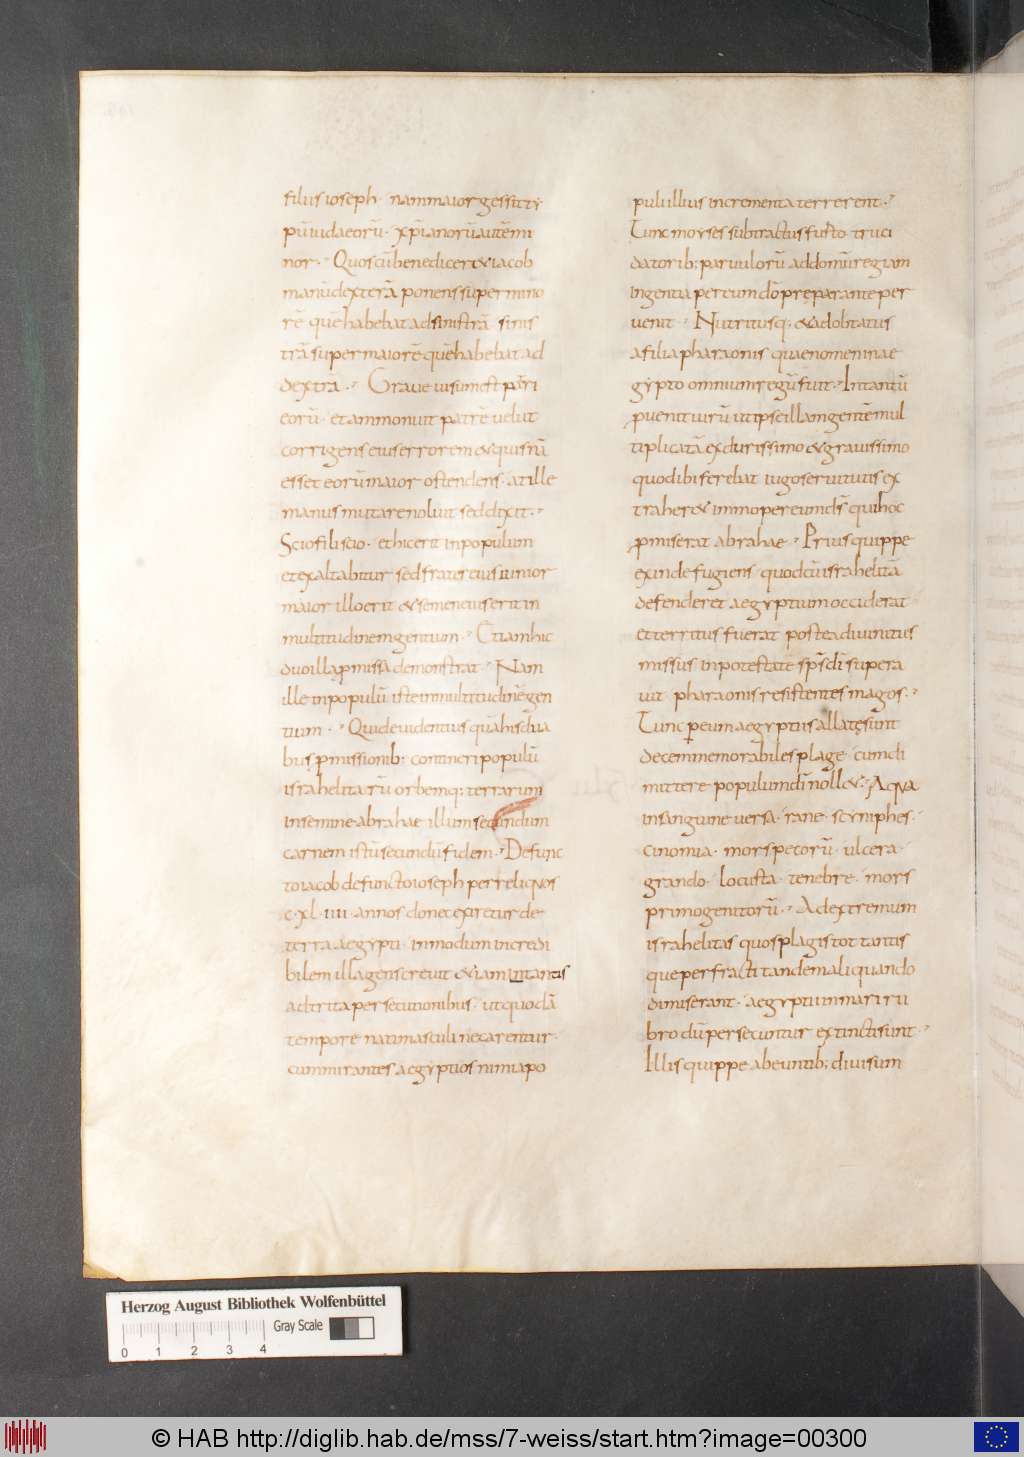 filius ioseph · nam maior gessit ty
pū iudaeorū · xp̄ianorū autē mi
nor · Quos cū benediceret iacob
manū dexterā ponens super mino
rē quē habebat ad sinistrā sinis
trā super maiorē quē habebat ad
dextrā · Grave visum est patri
eorū · et ammonuit patrē velut
corrigens eius errorem & quis nā
esset eorū maior ostendens · at ille
manus mutare noluit sed dixit ·
Scio fili scio · et hic erit in populum
et exaltabitur sed frater eius iunior
maior illo erit & semen eius erit in
multitudinem gentium · Etiam hic
duo illa ꝓmissa demonstrat · Nam
ille in populū iste in multitudinē gen
tium · Quid evidentius quā his dua
bus ꝓmissionib; contineri populū
israhelitarū orbemq; terrarum
in semine abrahae illum secundum
carnem istū secundū fidem · Defunc
to iacob defuncto ioseph per reliquos
c·xl·iiii· annos donec exiretur de
terra aegypti · in modum incredi
bilem illa gens crevit & iam in tantis
adtrita persecutionibus · ut quodā
tempore nati masculi necarentur ·
cum mirantes aegyptios nimia po
puli illius incrementa terrerent ·
Tunc moyses subtractus furto truci
datorib; parvulorū ad domū regiam
ingentia per eum dō pręparante per
venit · Nutritusq; & adobtatus
a filia pharaonis quae nomen in ae
gypto omnium regū fuit · In tantū
ꝓvenit virū ut ipse illam gentē mul
tiplicatā ex durissimo & gravissimo
quod ibi ferebat iugo servitutis ex
traheret immo per eum ds̄ qui hoc
ꝓmiserat abrahae · Prius quippe
exinde fugiens quod cū israhelitā
defenderet aegyptium occiderat
et territus fuerat postea divinitus
missus in potestate sps̄ dī supera
vit pharaonis resistentes magos ·
Tunc per eum aegyptiis allatę sunt
decem memorabiles plage · cum di
mittere populum dī nollet · Aqua
in sanguine versa · rane · scyniphes ·
cinomia · mors pecorū · ulcera ·
grando · locusta · tenebre · mors
primogenitorū · Ad extremum
israhelitas quos plagis tot tantis
que perfracti tandem aliquando
dimiserant · aegyptii in mari ru
bro dū persecuntur extincti sunt ·
Illis quippe abeuntib; divisum
Herzog August Bibliothek Wolfenbüttel
Gray Scale
0 1 2 3 4
© HAB http://diglib.hab.de/mss/7-weiss/start.htm?image=00300